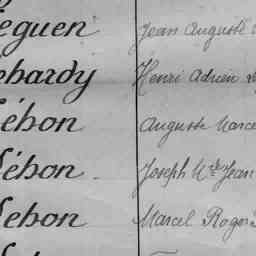 éguen Jean Auguste
ebardy Henri Adrien
ébon Auguste Marce
ébon Joseph Mie Jean
ebon Marcel Roger